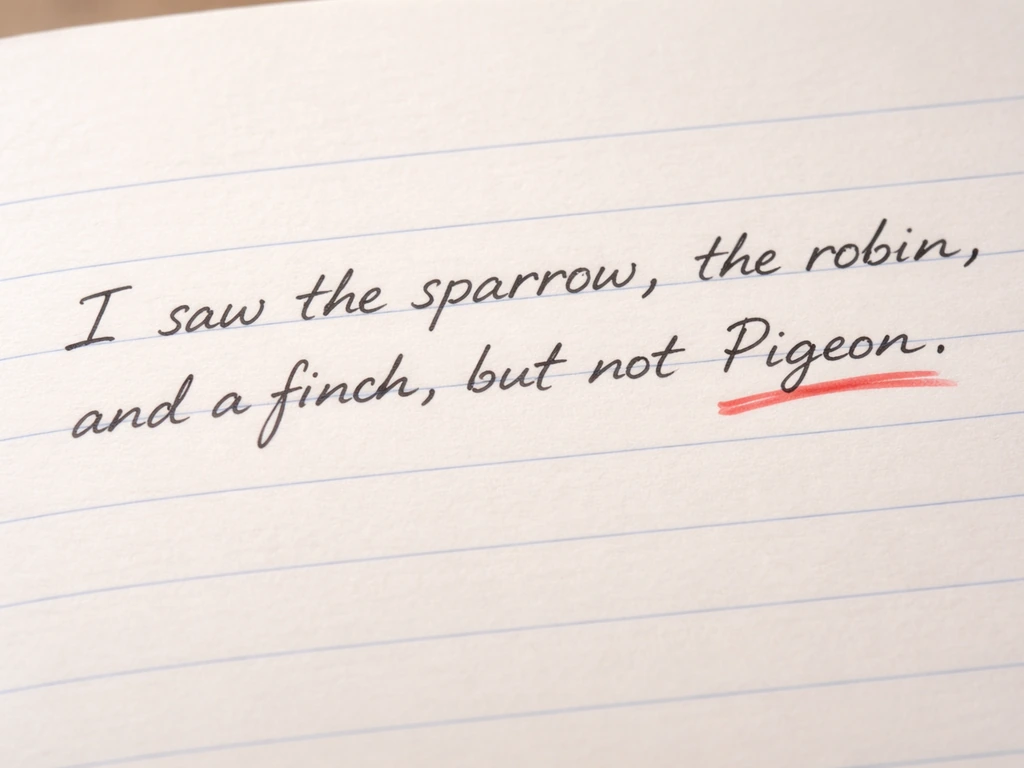 I saw the sparrow, the robin,
and a finch, but not Pigeon.